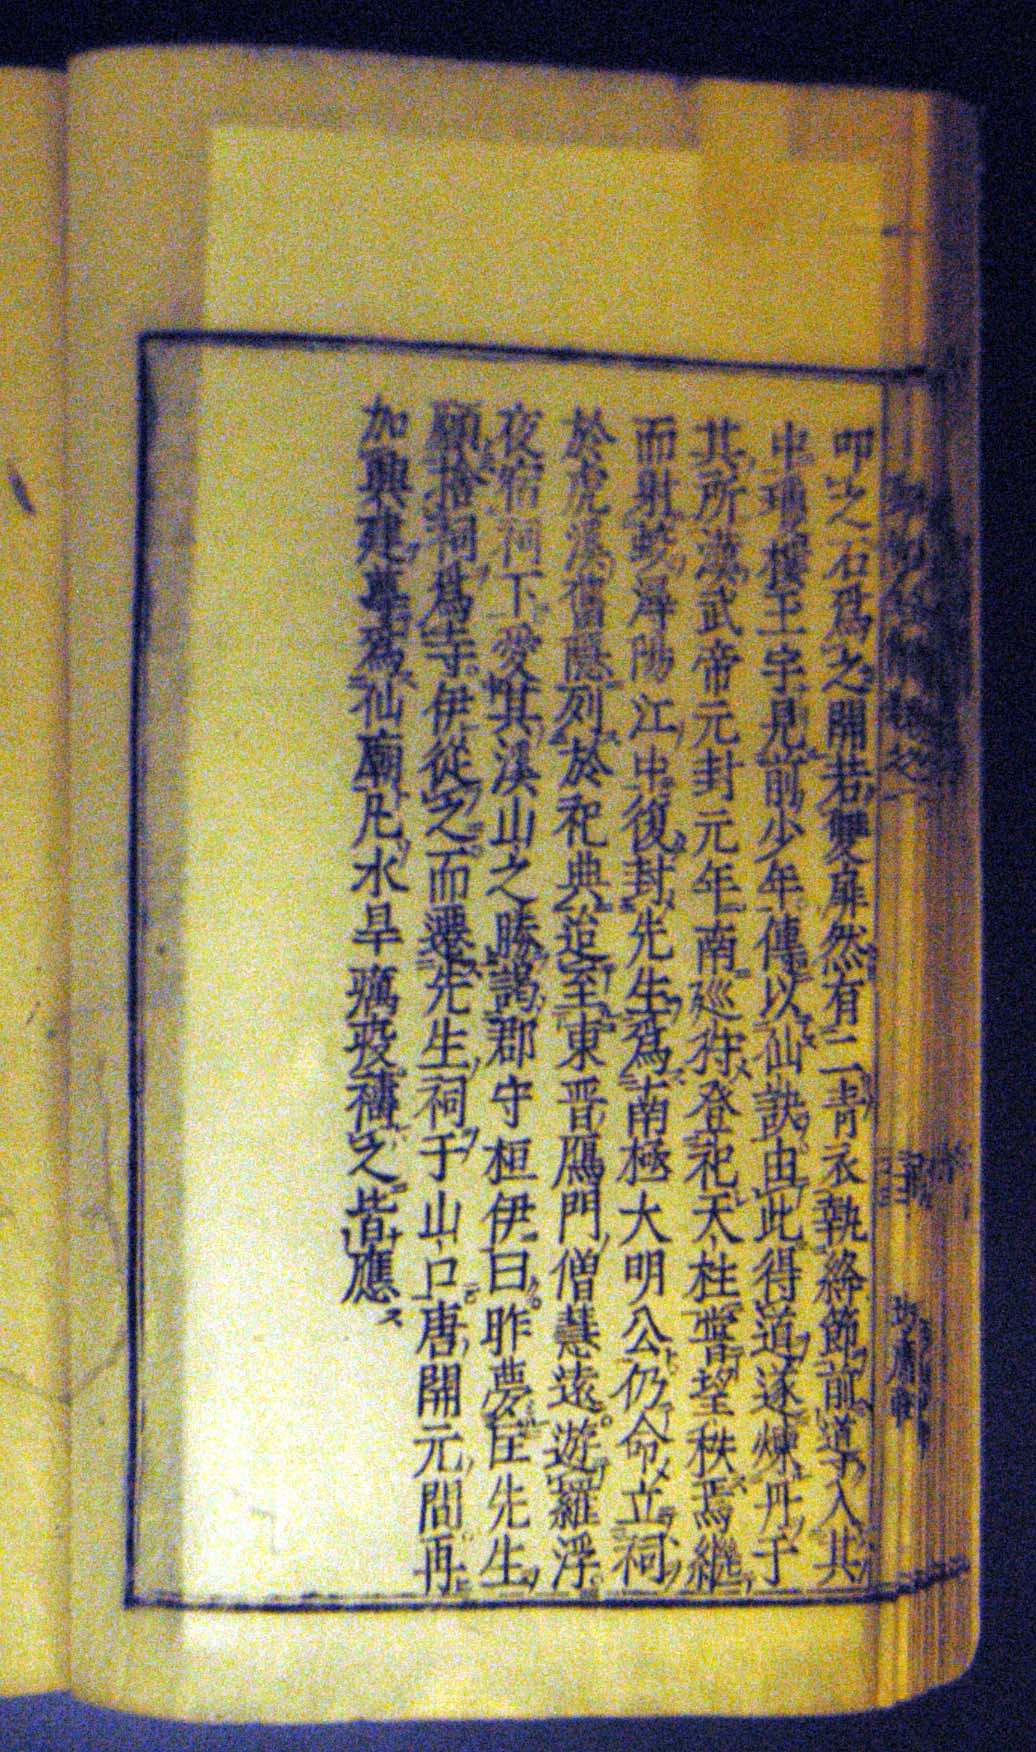 叩之石爲之開若雙扉然有二青衣執絳節前導入其
中瓊樓玉宇見前少年傳以仙訣由此得道遂煉丹于
其所漢武帝元封元年南廵狩登祀天柱嘗望秩焉繼
而射蛟潯陽江中復封先生爲南極大明公仍命立祠
於虎溪舊隱列於祀典迨至東晋鴈門僧慧遠遊羅浮
夜宿祠下愛其溪山之勝謁郡守桓伊曰昨夢匡先生
願捨祠爲寺伊從之而遷先生祠于山口唐開元間再
加興建尊爲仙廟凡水旱癘疫禱之皆應